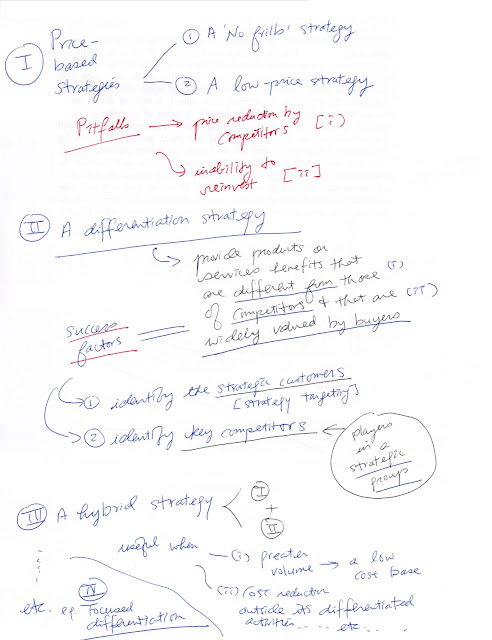 I Price-
based
strategies
① A 'No frills' strategy
② A low-price strategy
Pitfalls → price reduction by
competitors [i)
inability to
reinvest [ii]
II A differentiation strategy
provide products or
services benefits that
are different from those (i)
of competitors & that are (ii)
widely valued by buyers
success
factors
① identify the strategic customers
[strategy targeting]
② identify key competitors
players
in a
strategic
group
III A hybrid strategy
I
+
II
useful when (i) greater
volume → a low
cost base
(ii) cost reduction
outside its differentiated
activities ..... etc...
IV
etc. eg. Focused
differentiation